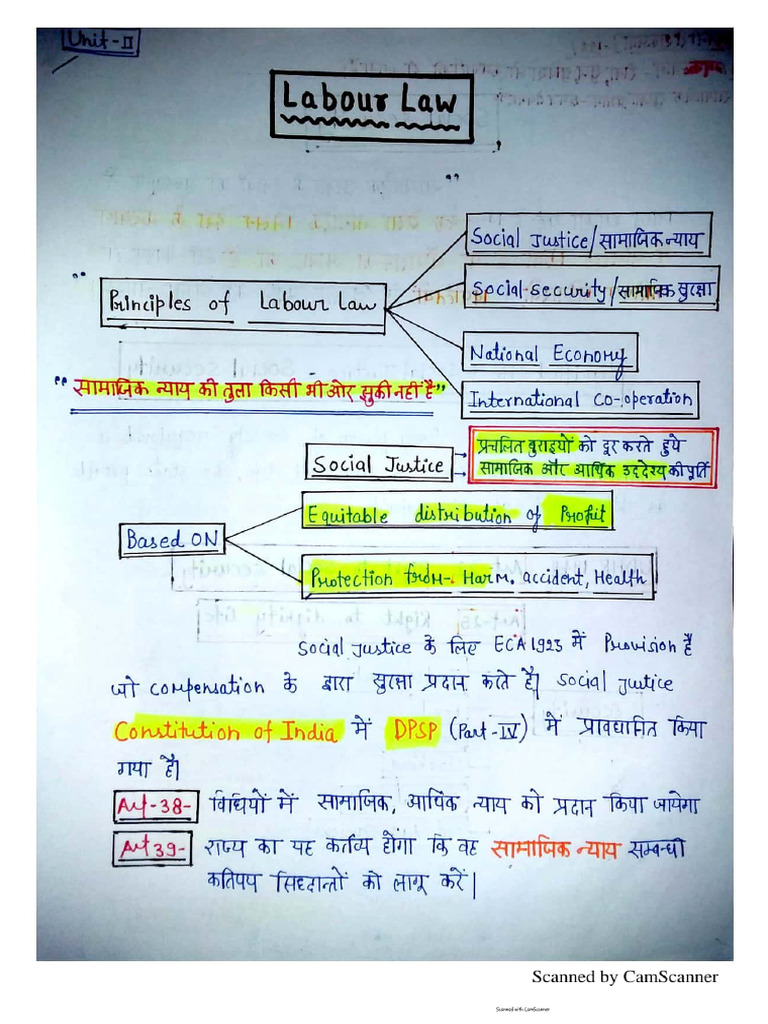 Unit-II
Labour Law
Social Justice/सामाजिक न्याय
Social security/सामाजिक सुरक्षा
"Principles of Labour Law"
National Economy
"सामाजिक न्याय की तुला किसी भी ओर झुकी नहीं है"
International co-operation
Social Justice
प्रचलित बुराइयों को दूर करते हुये
सामाजिक और आर्थिक उद्देश्य की पूर्ति
Equitable distribution of Profit
Based ON
Protection from- Harm. accident, Health
Social Justice के लिए ECA 1923 में Provision है
जो compensation के द्वारा सुरक्षा प्रदान करते है। Social Justice
Constitution of India में DPSP (Part-IV) में प्रावधानित किया
गया है।
Art-38- विधियों में सामाजिक, आर्थिक न्याय को प्रदान किया जायेगा
Art 39- राज्य का यह कर्तव्य होगा कि वह सामाजिक न्याय सम्बन्धी
कतिपय सिद्धान्तों को लागू करें।
Scanned by CamScanner
Scanned with CamScanner